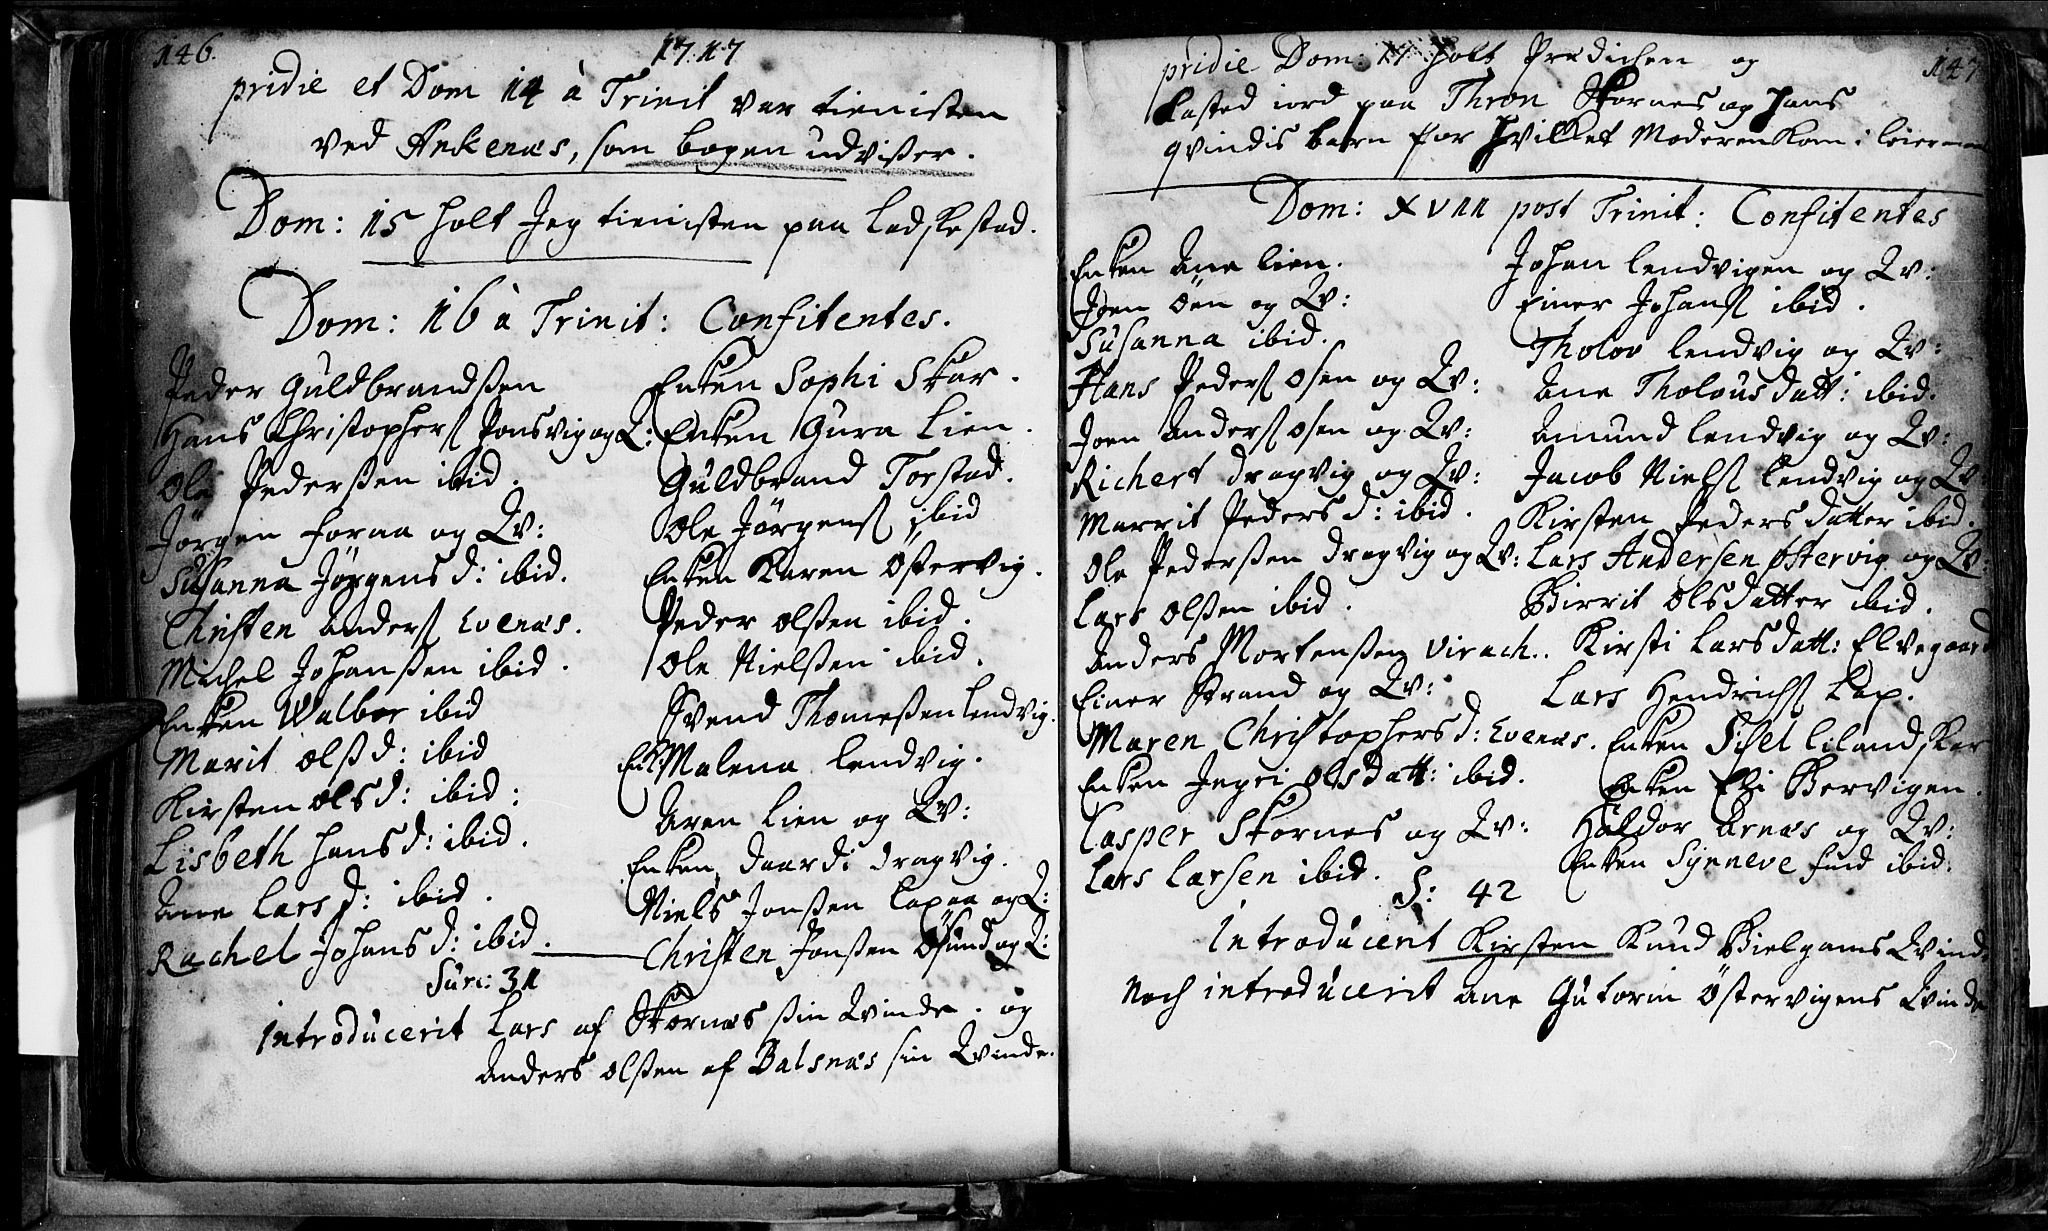 146.
1717
pridie et Dom 14 à Trinit var tienisten
ved Ankenæs, som bogen udvißer.
Dom: 15 holt Jeg tienisten paa Lødskestad.
Dom: 16 à Trinit: Confitentes.
Peder Guldbrandßen
Hans Christophers Ponsvig og Q:
Ole Pederßen ibid.
Jørgen foraa og Qv:
Susanna Jørgens d: ibid.
Christen Anders Evenæs.
Michel Johanßen ibid.
Enken Walbor ibid
Marit Olß d: ibid
Kirsten Ols d: ibid:
Lisbeth Hans d: ibid.
Ane Lars d: ibid.
Rachel Johans d: ibid.
Enken Sophi Skar.
Enken Gura Lien.
Guldbrand Torstad.
Ole Jørgens ibid
Enken Karen Østervig.
Peder Olßen ibid.
Ole Nielßen ibid.
Svend Thomeßen Lendvig.
Enk: Malena Lendvig.
Aren Lien og Qv:
Enken Daardi Dragvig.
Niels Jonßen Lapaa og Q:
Christen Jonßen Øsund og Q:
Sum: 31
introducerit Lars af Skornæs sin Qvinde. og
Anders Olßen af Balsnæs sin Qvinde.
147
pridie Dom: 17 holt Prædichen og
Kasted iord paa Thron Skornes og Hans
qvindis barn for hvilket Moderen kom i leiermaal
Dom: XVII post Trinit: Confitentes
Enken Ane Lien.
Joen Øen og Qv:
Susanna ibid.
Hans Peders Osen og Qv:
Joen Anders Osen og Qv:
Richert Dragvig og Qv:
Marrit Peders d: ibid.
Ole Pederßen Dragvig og Qv:
Lars Olßen ibid.
Anders Mortenßen Virach.
Einer Strand og Qv:
Maren Christophers d: Evenæs.
Enken Ingri Olsdatt: ibid.
Casper Skornes og Qv:
Lars Larsen ibid.
Johan Lendvigen og Qv:
Einer Johans ibid.
Tholov Lendvig og Qv:
Ane Tholous datt: ibid.
Amund Lendvig og Qv:
Jacob Niels Lendvig og Qv
Kirsten Peders datter ibid.
Lars Andersen Østervig og Qv:
Birrit Olsdatter ibid.
Kirsti Lars datt: Elvegaard
Lars Hendrichs Lap.
Enken Sisel Liland, Skar
Enken Eli Bervigen.
Haldor Arnæs og Qv:
Enken Synneve find ibid.
S: 42
Introducerit Kirsten Knud Bielgams Qvinde
Noch introducerit Ane Gutorm Østervigens Qvinde